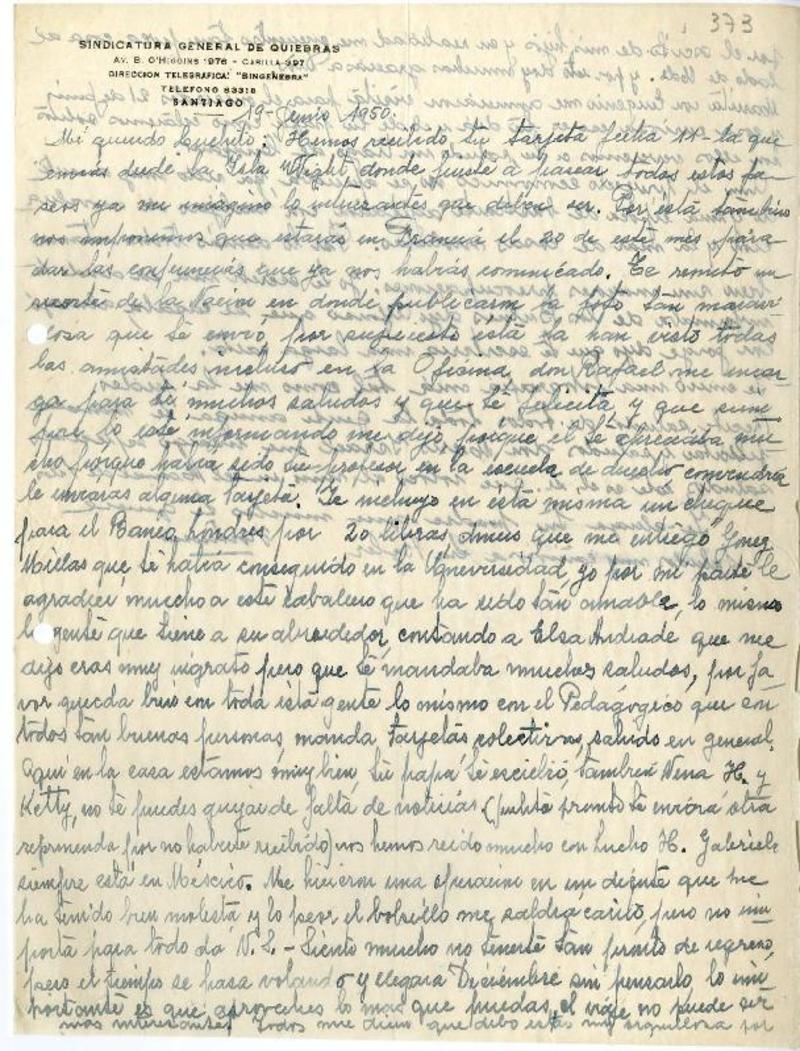 373
SINDICATURA GENERAL DE QUIEBRAS
AV. B. O'HIGGINS 1976 - CASILLA 397
DIRECCION TELEGRAFICA: "SINGENEBRA"
TELEFONO 83315
SANTIAGO
19-Junio 1950.
Mi querido Luchito: Hemos recibido tu tarjeta fecha 11- la que
envias desde la Isla Wight donde fuiste a pasar todos estos pa-
seos ya me imagino lo interesantes que deben ser. Por esta tambien
nos imponemos que estarás en Francia el 20 de este mes para
dar las conferencias que ya nos habias comunicado. Te remito un
recorte de la Nacion en donde publicaron la foto tan
que se envió, por supuesto esta la han visto todas
las amistades incluso en la Oficina, don Rafael me encar
ga para ti muchos saludos y que te felicita, y que siem
pre lo esté informando me dijo, porque el te apreciaba mu
cho porque habia sido tu profesor en la escuela de derecho convendria
le enviaras alguna tarjeta. Te incluyo en esta misma un cheque
para el Banco Londres por 20 libras dineros que me entregó Gomez
Millas que te habia conseguido en la Universidad, yo por mi parte le
agradeci mucho a este caballero que ha sido tan amable, lo mismo
la gente que tiene a su alrededor, contando a Elsa Andrade que me
dijo eras muy ingrato pero que te mandaba muchos saludos, por fa-
vor queda bien con toda esta gente lo mismo con el Pedagógico que son
todos tan buenas personas, manda tarjetas colectivas, saludo en general.
Aqui en la casa estamos muy bien, tu papá te escribió, tambien Nena H. y
Ketty, no te puedes quejar de falta de noticias (pronto te enviará otra
por no haberte recibido) nos hemos reido mucho con Lucho H. Gabriela
siempre está en Mescico. Me hicieron una operacion en un diente que me
ha tenido bien molesta, y lo peor el bolsillo me saldrá carito, pero no im
porta para todo da N. S. - Siento mucho no tenerte tan pronto de regreso,
pero el tiempo se pasa volando y llegara Deciembre sin pensarlo, lo im
portante es que aproveches lo mas que puedas, el viaje no puede ser
mas interesante, Todos me dicen que debo estar muy orgullosa por